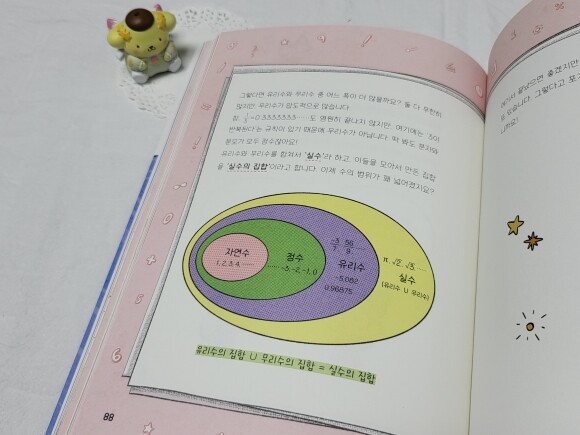 그렇다면 유리수와 무리수 중 어느 쪽이 더 많을까요? 둘 다 무한히
많지만, 무리수가 압도적으로 많습니다.
참, 1/3=0.33333333……도 영원히 끝나지 않지만, 여기에는 '3이
반복된다'는 규칙이 있기 때문에 무리수가 아닙니다. 딱 봐도 분자와
분모가 모두 정수잖아요!
유리수와 무리수를 합쳐서 '실수'라 하고, 이들을 모아서 만든 집합
을 '실수의 집합'이라고 합니다. 이제 수의 범위가 꽤 넓어졌지요?
자연수
1, 2, 3, 4, ……
정수
……-3, -2, -1, 0
유리수
-5.082
0.96875
π, √2, √3, ……
실수
(유리수 ∪ 무리수)
유리수의 집합 ∪ 무리수의 집합 = 실수의 집합
88
여기서 끝났으면 좋겠지만
도 있습니다. 그렇다고 포기
니까요!